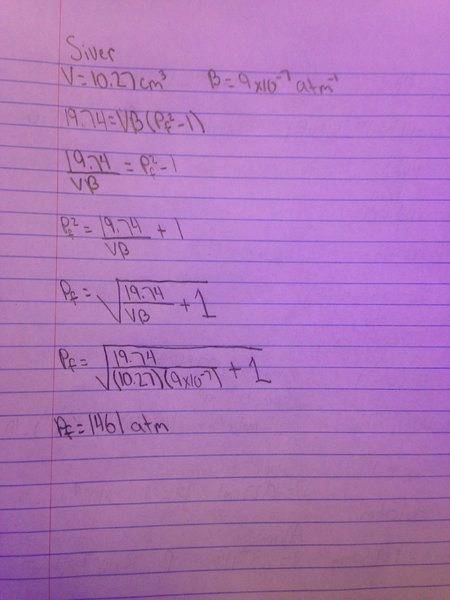 Siver
V = 10.27 cm³ B = 9x10⁻⁷ atm⁻¹
19.74 = VB(P_f² - 1)
19.74/VB = P_f² - 1
P_f² = 19.74/VB + 1
P_f = √(19.74/VB + 1)
P_f = √(19.74/(10.27)(9x10⁻⁷) + 1)
P_f = 1461 atm